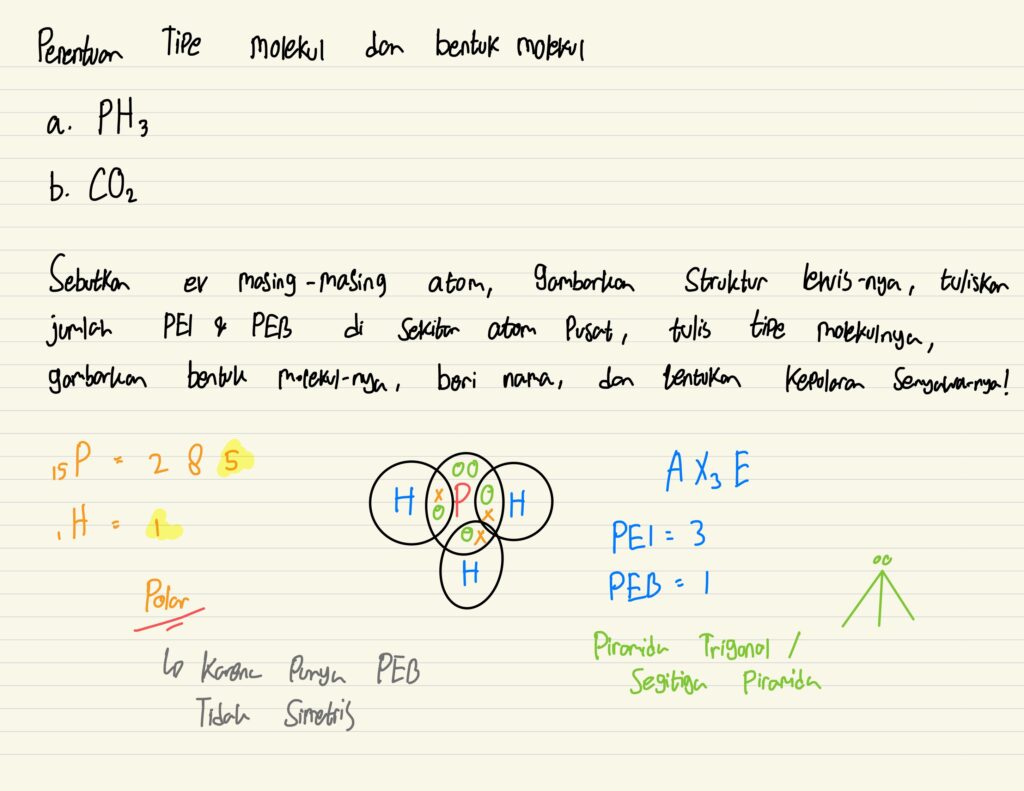 Penentuan Tipe molekul dan bentuk molekul
a. PH₃
b. CO₂
Sebutkan ev masing-masing atom, gambarkan Struktur lewis-nya, tuliskan
jumlah PEI & PEB di sekitar atom Pusat, tulis tipe molekulnya,
gambarkan bentuk molekul-nya, beri nama, dan tentukan Kepolaran Senyawa-nya!
₁₅P = 2 8 5
₁H = 1
Polar
↳ Karena Punya PEB
Tidak Simetris
OO
H x P O H
O x
O x
H
A X₃ E
PEI = 3
PEB = 1
oo
Piramida Trigonal /
Segitiga Piramida